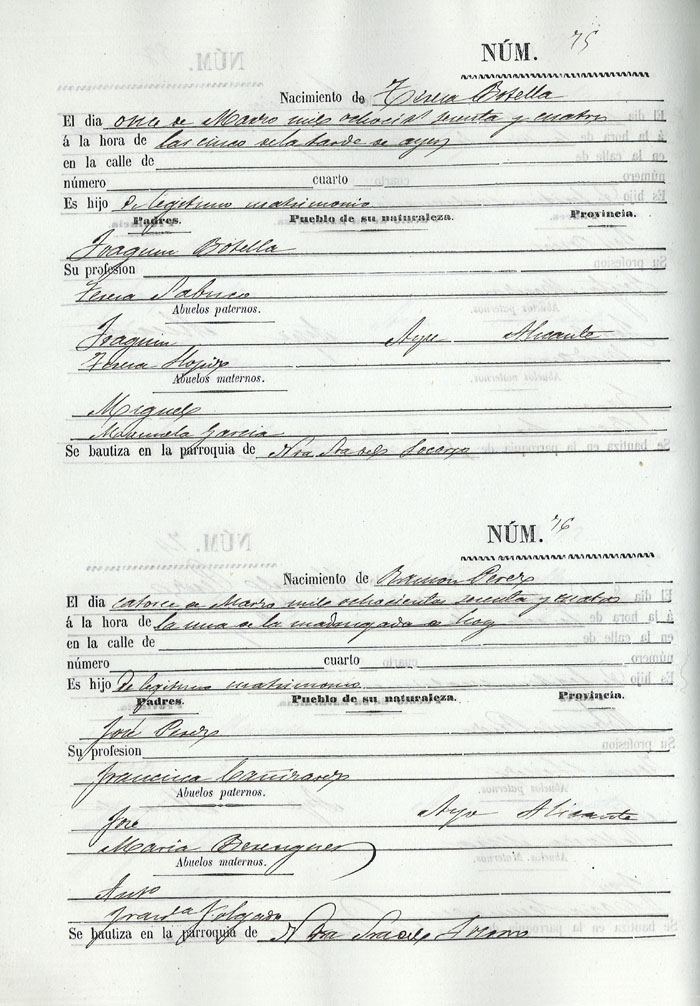 NÚM. 75
Nacimiento de Teresa Botella
El dia once de Marzo mil ochocis sesenta y cuatro
á la hora de las cinco de la tarde de ayer
en la calle de
número cuarto
Es hijo de legitimo matrimonio
Padres. Pueblo de su naturaleza. Provincia.
Joaquin Botella
Su profesion
Teresa
Abuelos paternos.
Joaquin Aspe Alicante
Teresa
Abuelos maternos.
Miguel
Manuela Garcia
Se bautiza en la parroquia de Ntra Sra del Socorro
NÚM. 76
Nacimiento de Ramon Perez
El dia catorce de Marzo mil ochocientos sesenta y cuatro
á la hora de la una de la madrugada de hoy
en la calle de
número cuarto
Es hijo de legitimo matrimonio
Padres. Pueblo de su naturaleza. Provincia.
José Perez
Su profesion
Francisca Cañizares
Abuelos paternos.
José Aspe Alicante
Maria Berenguer
Abuelos maternos.
Anto
Franca
Se bautiza en la parroquia de Ntra Sra del Socorro